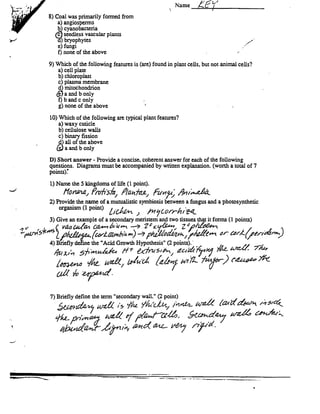 Name KEY
8) Coal was primarily formed from
a) angiosperms
b) cyanobacteria
c) seedless vascular plants
d) bryophytes
e) fungi
f) none of the above
9) Which of the following features is (are) found in plant cells, but not animal cells?
a) cell plate
b) chloroplast
c) plasma membrane
d) mitochondrion
e) a and b only
f) b and c only
g) none of the above
10) Which of the following are typical plant features?
a) waxy cuticle
b) cellulose walls
c) binary fission
d) all of the above
e) a and b only
D) Short answer - Provide a concise, coherent answer for each of the following
questions. Diagrams must be accompanied by written explanation. (worth a total of 7
points):
1) Name the 5 kingdoms of life (1 point).
Monera, Protista, Plantae, Fungi, Animalia
2) Provide the name of a mutualistic symbiosis between a fungus and a photosynthetic
organism (1 point)
Lichen, mycorrhizea
3) Give an example of a secondary meristem and two tissues that it forms (1 points)
2° meristems { vascular cambium → 2° xylem, 2° phloem
phellogen (cork cambium) → phelloderm, phellem or cork (periderm)
4) Briefly define the "Acid Growth Hypothesis" (2 points).
Auxin stimulates H+ extrusion, acidifying the wall. This
loosens the wall, which (along with turgor) causes the
cell to expand.
7) Briefly define the term "secondary wall." (2 point)
Secondary wall is the thicker, inner wall laid down inside
the primary wall of plant cells. Secondary walls contain
abundant lignin, and are very rigid.